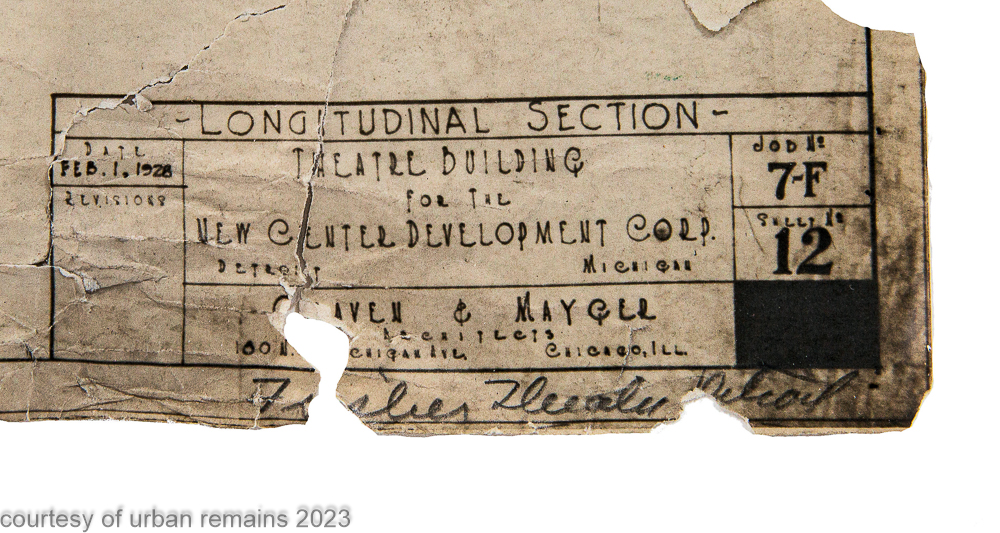 - LONGITUDINAL SECTION -
DATE
FEB. 1, 1928
REVISIONS
THEATRE BUILDING
FOR THE
NEW CENTER DEVELOPMENT CORP.
DETROIT MICHIGAN
& MAYGER
ARCHITECTS
CHICAGO, ILL.
JOB Nº
7-F
SHEET Nº
12
Fisher Theatre Detroit
courtesy of urban remains 2023